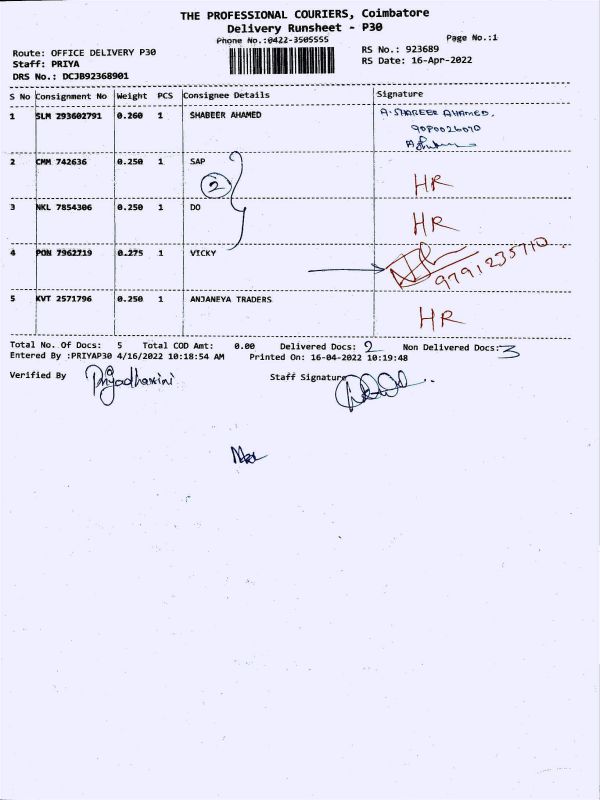 THE PROFESSIONAL COURIERS, Coimbatore
Delivery Runsheet - P30
Phone No.:0422-3505555
Page No.:1
Route: OFFICE DELIVERY P30
RS No.: 923689
Staff: PRIYA
RS Date: 16-Apr-2022
DRS No.: DCJB92368901
S No Consignment No Weight PCS Consignee Details Signature
1 SLM 293602791 0.260 1 SHABEER AHAMED A. SHABEER AHAMED.
9080026070
2 CMM 742636 0.250 1 SAP HR
2
3 NKL 7854306 0.250 1 DO HR
4 PON 7962719 0.275 1 VICKY 9791235710
5 KVT 2571796 0.250 1 ANJANEYA TRADERS HR
Total No. Of Docs: 5 Total COD Amt: 0.00 Delivered Docs: 2 Non Delivered Docs: 3
Entered By :PRIYAP30 4/16/2022 10:18:54 AM Printed On: 16-04-2022 10:19:48
Verified By Priyadharsini Staff Signature